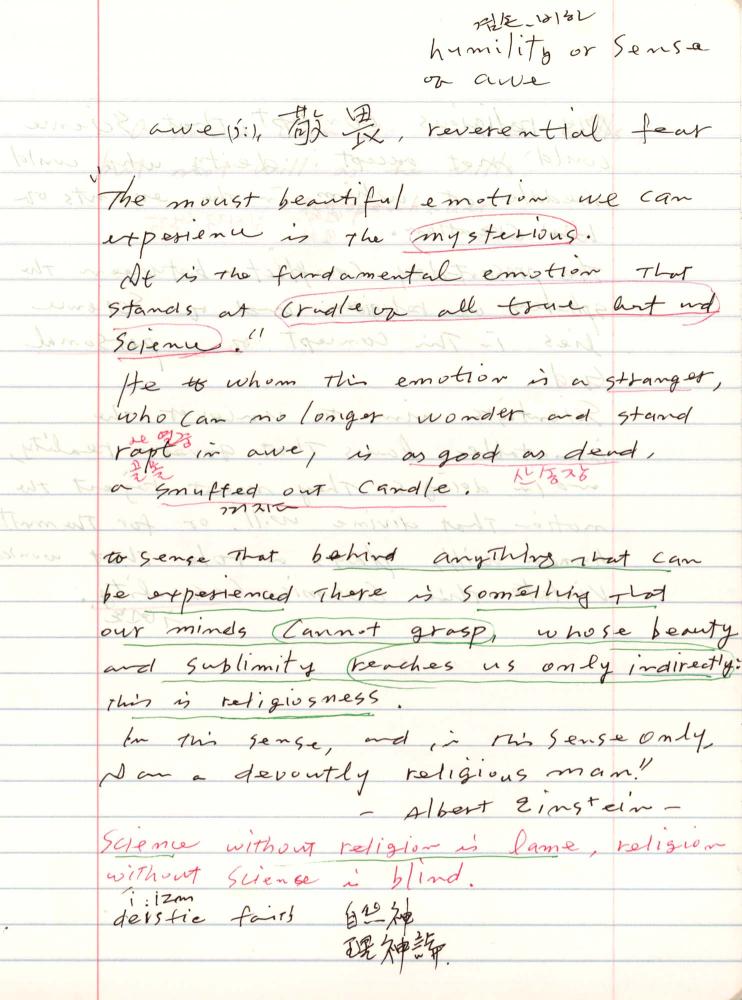 겸손. 비하
humility or sense
of awe
awe(ɔ:), 敬畏, reverential fear
"The moust beautiful emotion we can
experience is the mysterious.
It is the fundamental emotion that
stands at cradle of all true art nd
Science."
He to whom this emotion is a stranger,
who can no longer wonder and stand
rapt in awe, is as good as dead,
골몰 산송장
a snuffed out candle.
꺼지다
to sense that behind anything that can
be experienced there is something that
our minds cannot grasp, whose beauty
and sublimity reaches us only indirectly:
this is religiousness.
In this sense, and in this sense only,
I am a devoutly religious man."
- Albert Einstein -
Science without religion is lame, religion
without science is blind.
i:izm
deistic faith 自然神
理神論.